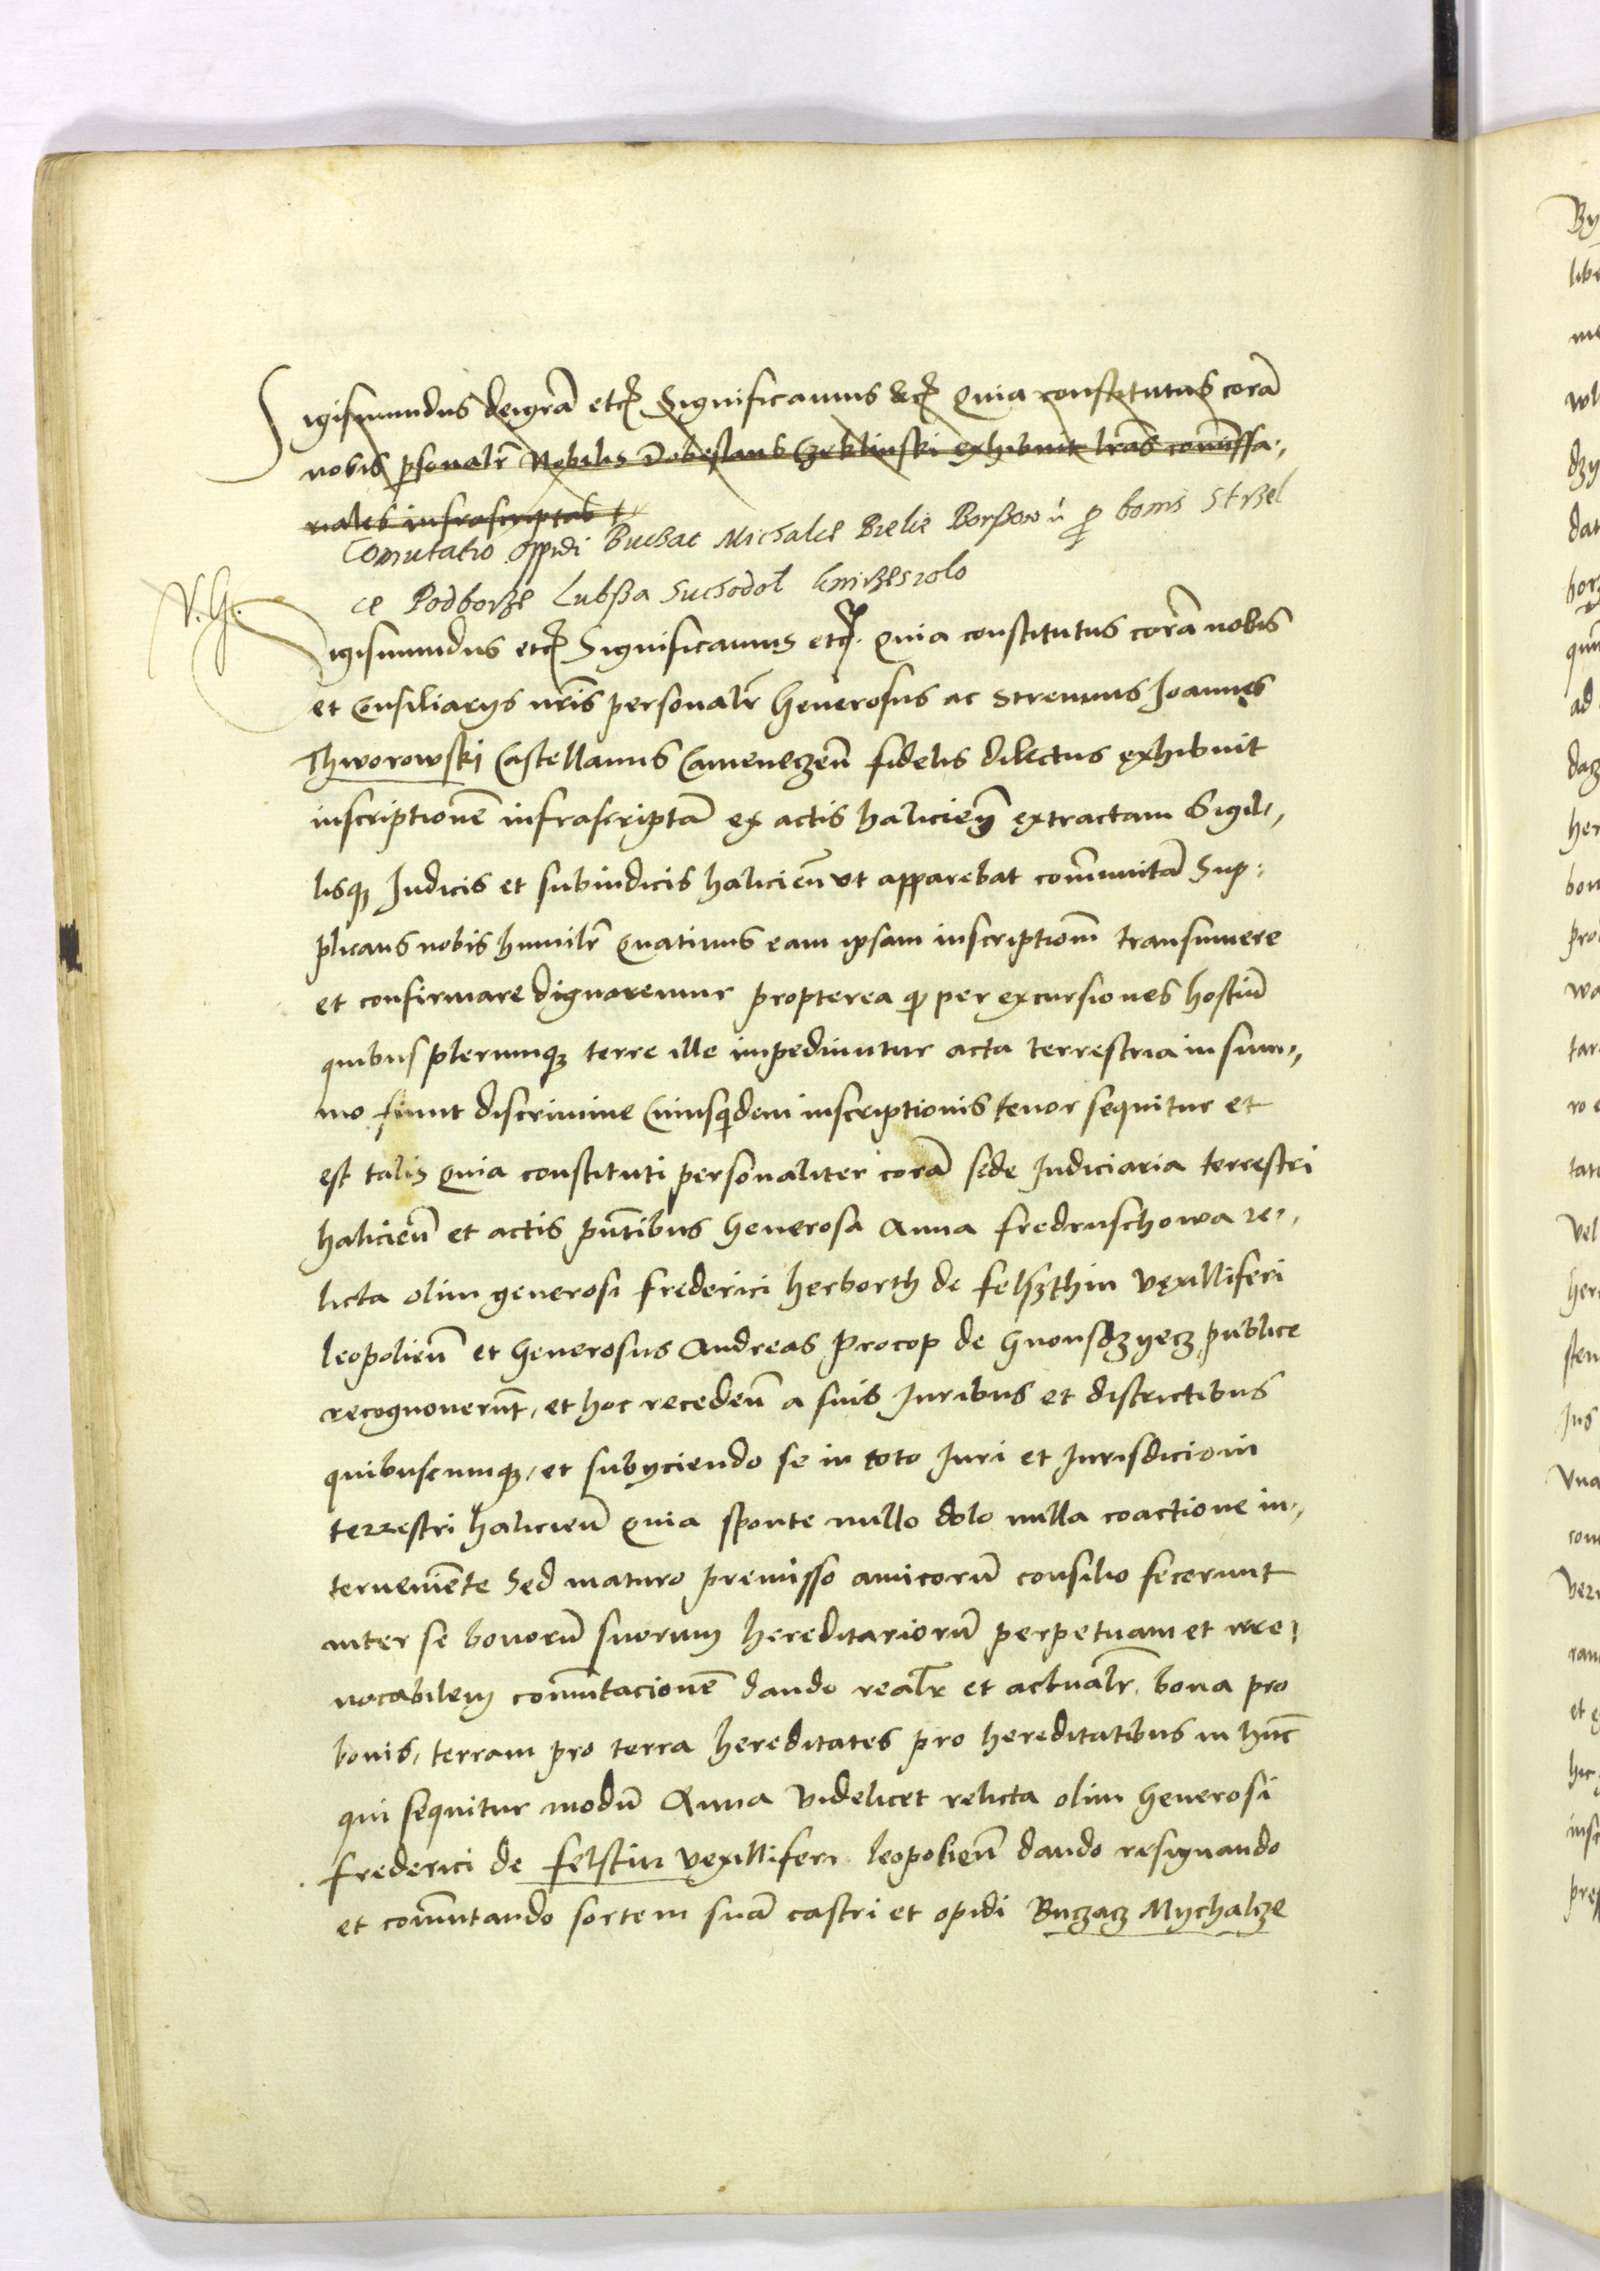 Sigismundus dei gra᷑ etc᷑ Significamus &c᷑ Quia constitutus cora᷑
nobis psonalr᷑ Nobilis Dobeslaus exhibuit lras᷑ comissa-
riales infrascriptas
Comutatio oppidi Buczac Michalcze Bielie Borszow pro bonis Strzel
ce Podborze Lubsza Suchodol Knizesiolo
V. G.
Sigismundus etc᷑ Significamus etc᷑. Quia constitutus cora᷑ nobis
et Consiliarijs nr᷑is personalr᷑ Generosus ac Strenuus Joannes
Thworowskj Castellanus Cameneczen᷑ fidelis dilectus exhibuit
inscriptione᷑ infrascripta᷑ ex actis halicien᷑ extractam Sigil-
lisq᷑ Judicis et subiudicis halicien᷑ ut apparebat communita᷑ Sup-
plicans nobis humilr᷑ Quatinus eam ipsam inscription᷑m transumere
et confirmare dignaremur propterea q᷑ per excursiones hostiu᷑
quibus plerumq᷑ terre ille impediuntur acta terrestria in sum-
mo fiunt discrimine Cuiusquidem inscriptionis tenor sequitur et
est talis Quia constituti personaliter cora᷑ sede Judiciaria terrestri
halicien᷑ et actis pn᷑tibus Generosa Anna fredruschowa re-
licta olim generosi frederici herborth de felszthin vexilliferi
leopolien᷑ et Generosus Andreas Procop de publice
recognouerun᷑t, et hoc receden᷑ a suis Juribus et districtibus
quibuscumq᷑, et subijciendo se in toto Juri et Jurisdicioni
terrestri halicien᷑ Quia sponte nullo dolo nulla coactione in-
terueniente Sed maturo premisso amicoru᷑ consilio fecerunt
inter se bonoru᷑ suorum hereditarioru᷑ perpetuam et irre-
uocabilem com᷑mutacione᷑ dando realr᷑ et actualr᷑ bona pro
bonis, terram pro terra hereditates pro hereditatibus in hun᷑c
qui sequitur modu᷑ Anna videlicet relicta olim Generosi
frederici de felstin vexilliferi leopolien᷑ dando resignando
et com᷑mutando sortem sua᷑ castri et opidi Buczacz Mychalcze